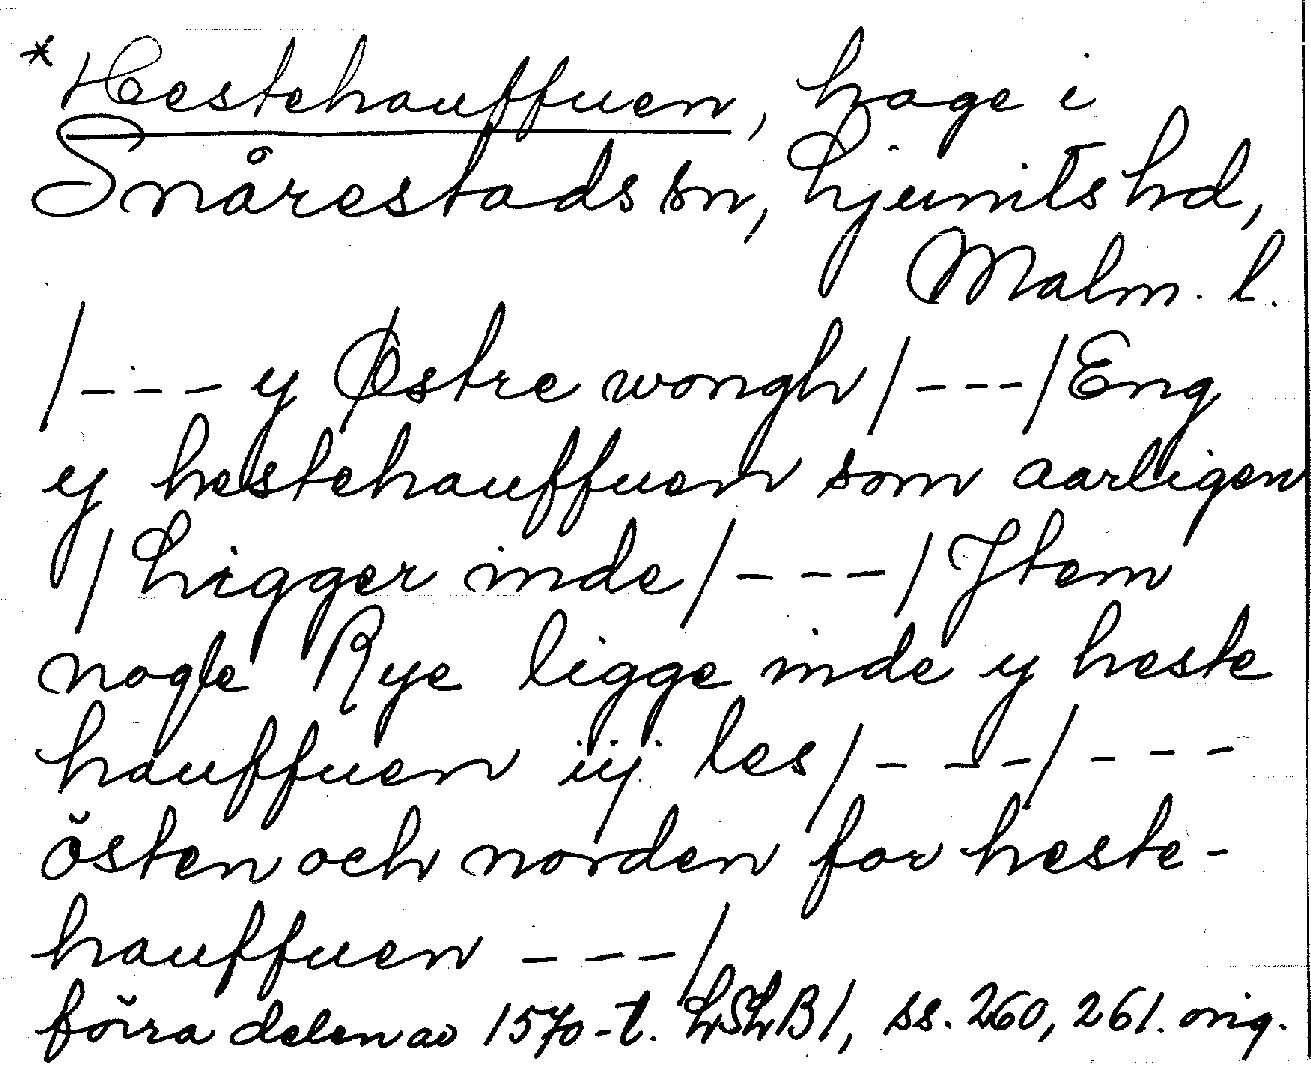 * Hestehauffuen, hage i
Snårestads sn, Ljunits hd,
Malm. l.
/--- y Østre wongh/---/Eng
y hestehauffuen som aarligen
/Ligger inde/---/Jtem
nogle Rye ligge inde y heste
hauffuen iij les/---/---
östen och norden for heste-
hauffuen ---/
förra delen av 1570-t. LSLB1, ss. 260, 261. orig.